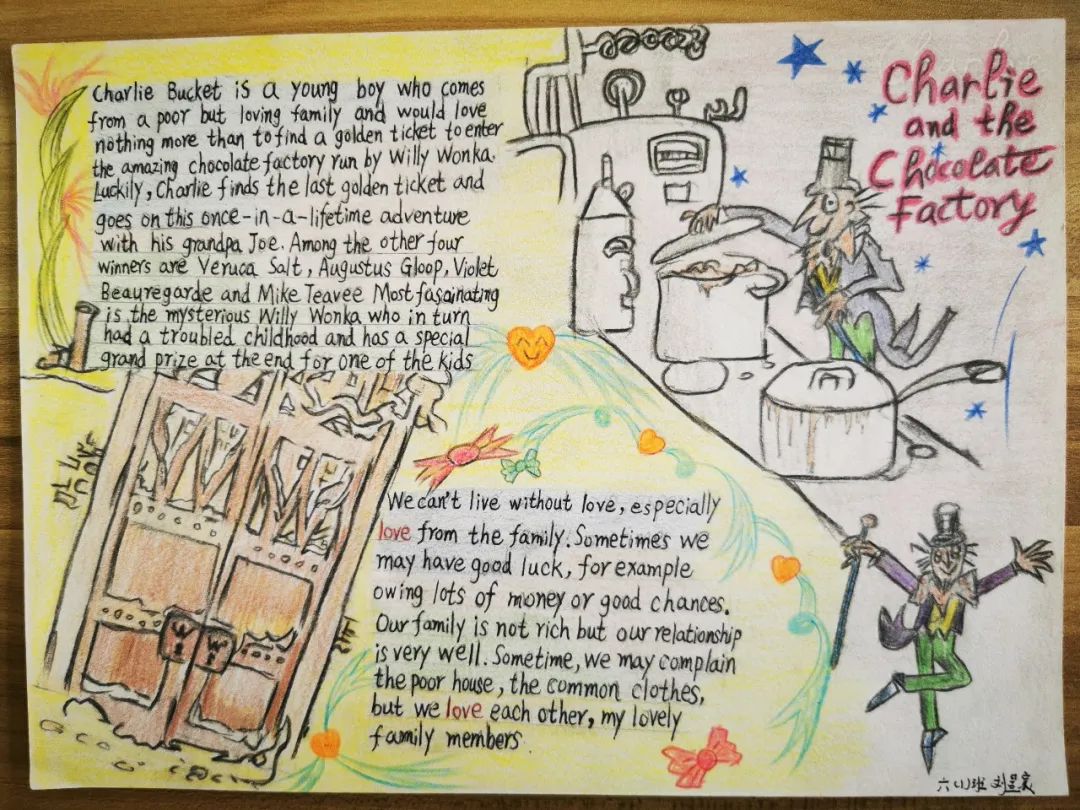 Charlie Bucket is a young boy who comes
from a poor but loving family and would love
nothing more than to find a golden ticket to enter
the amazing chocolate factory run by Willy Wonka.
Luckily, Charlie finds the last golden ticket and
goes on this once-in-a-lifetime adventure
with his grandpa Joe. Among the other four
winners are Veruca Salt, Augustus Gloop, Violet
Beauregarde and Mike Teavee Most fasainating
is the mysterious Willy Wonka who in turn
had a troubled childhood and has a special
grand prize at the end for one of the kids
Charlie
and the
Chocolate
Factory
W W
We can't live without love, especially
love from the family. Sometimes we
may have good luck, for example
owing lots of money or good chances.
Our family is not rich but our relationship
is very well. Sometime, we may complain
the poor house, the common clothes,
but we love each other, my lovely
family members.
六(1)班 刘